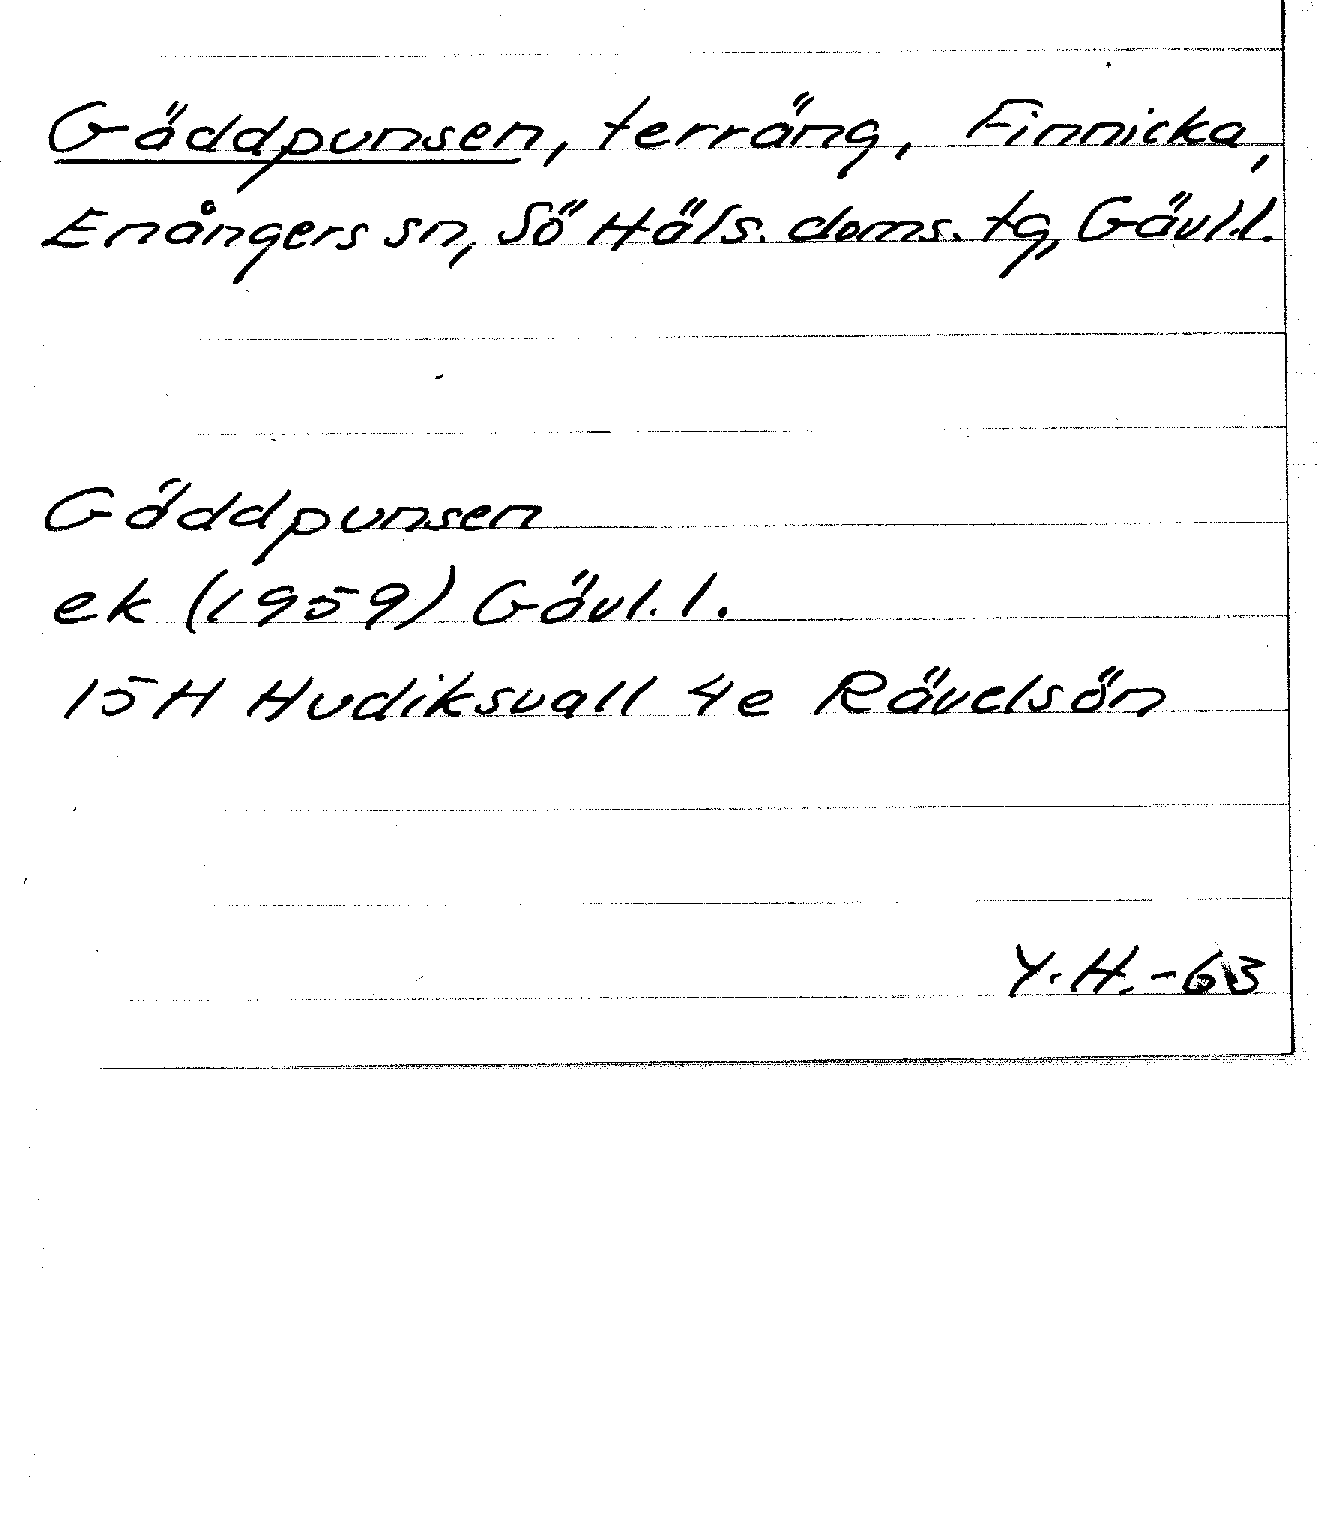 Gäddpunsen, terräng, Finnicka,
Enångers sn, Sö Häls. doms. tg, Gävl.l.
Gäddpunsen
ek (1959) Gävl. l.
15H Hudiksvall 4e Rävelsön
Y.H.-63